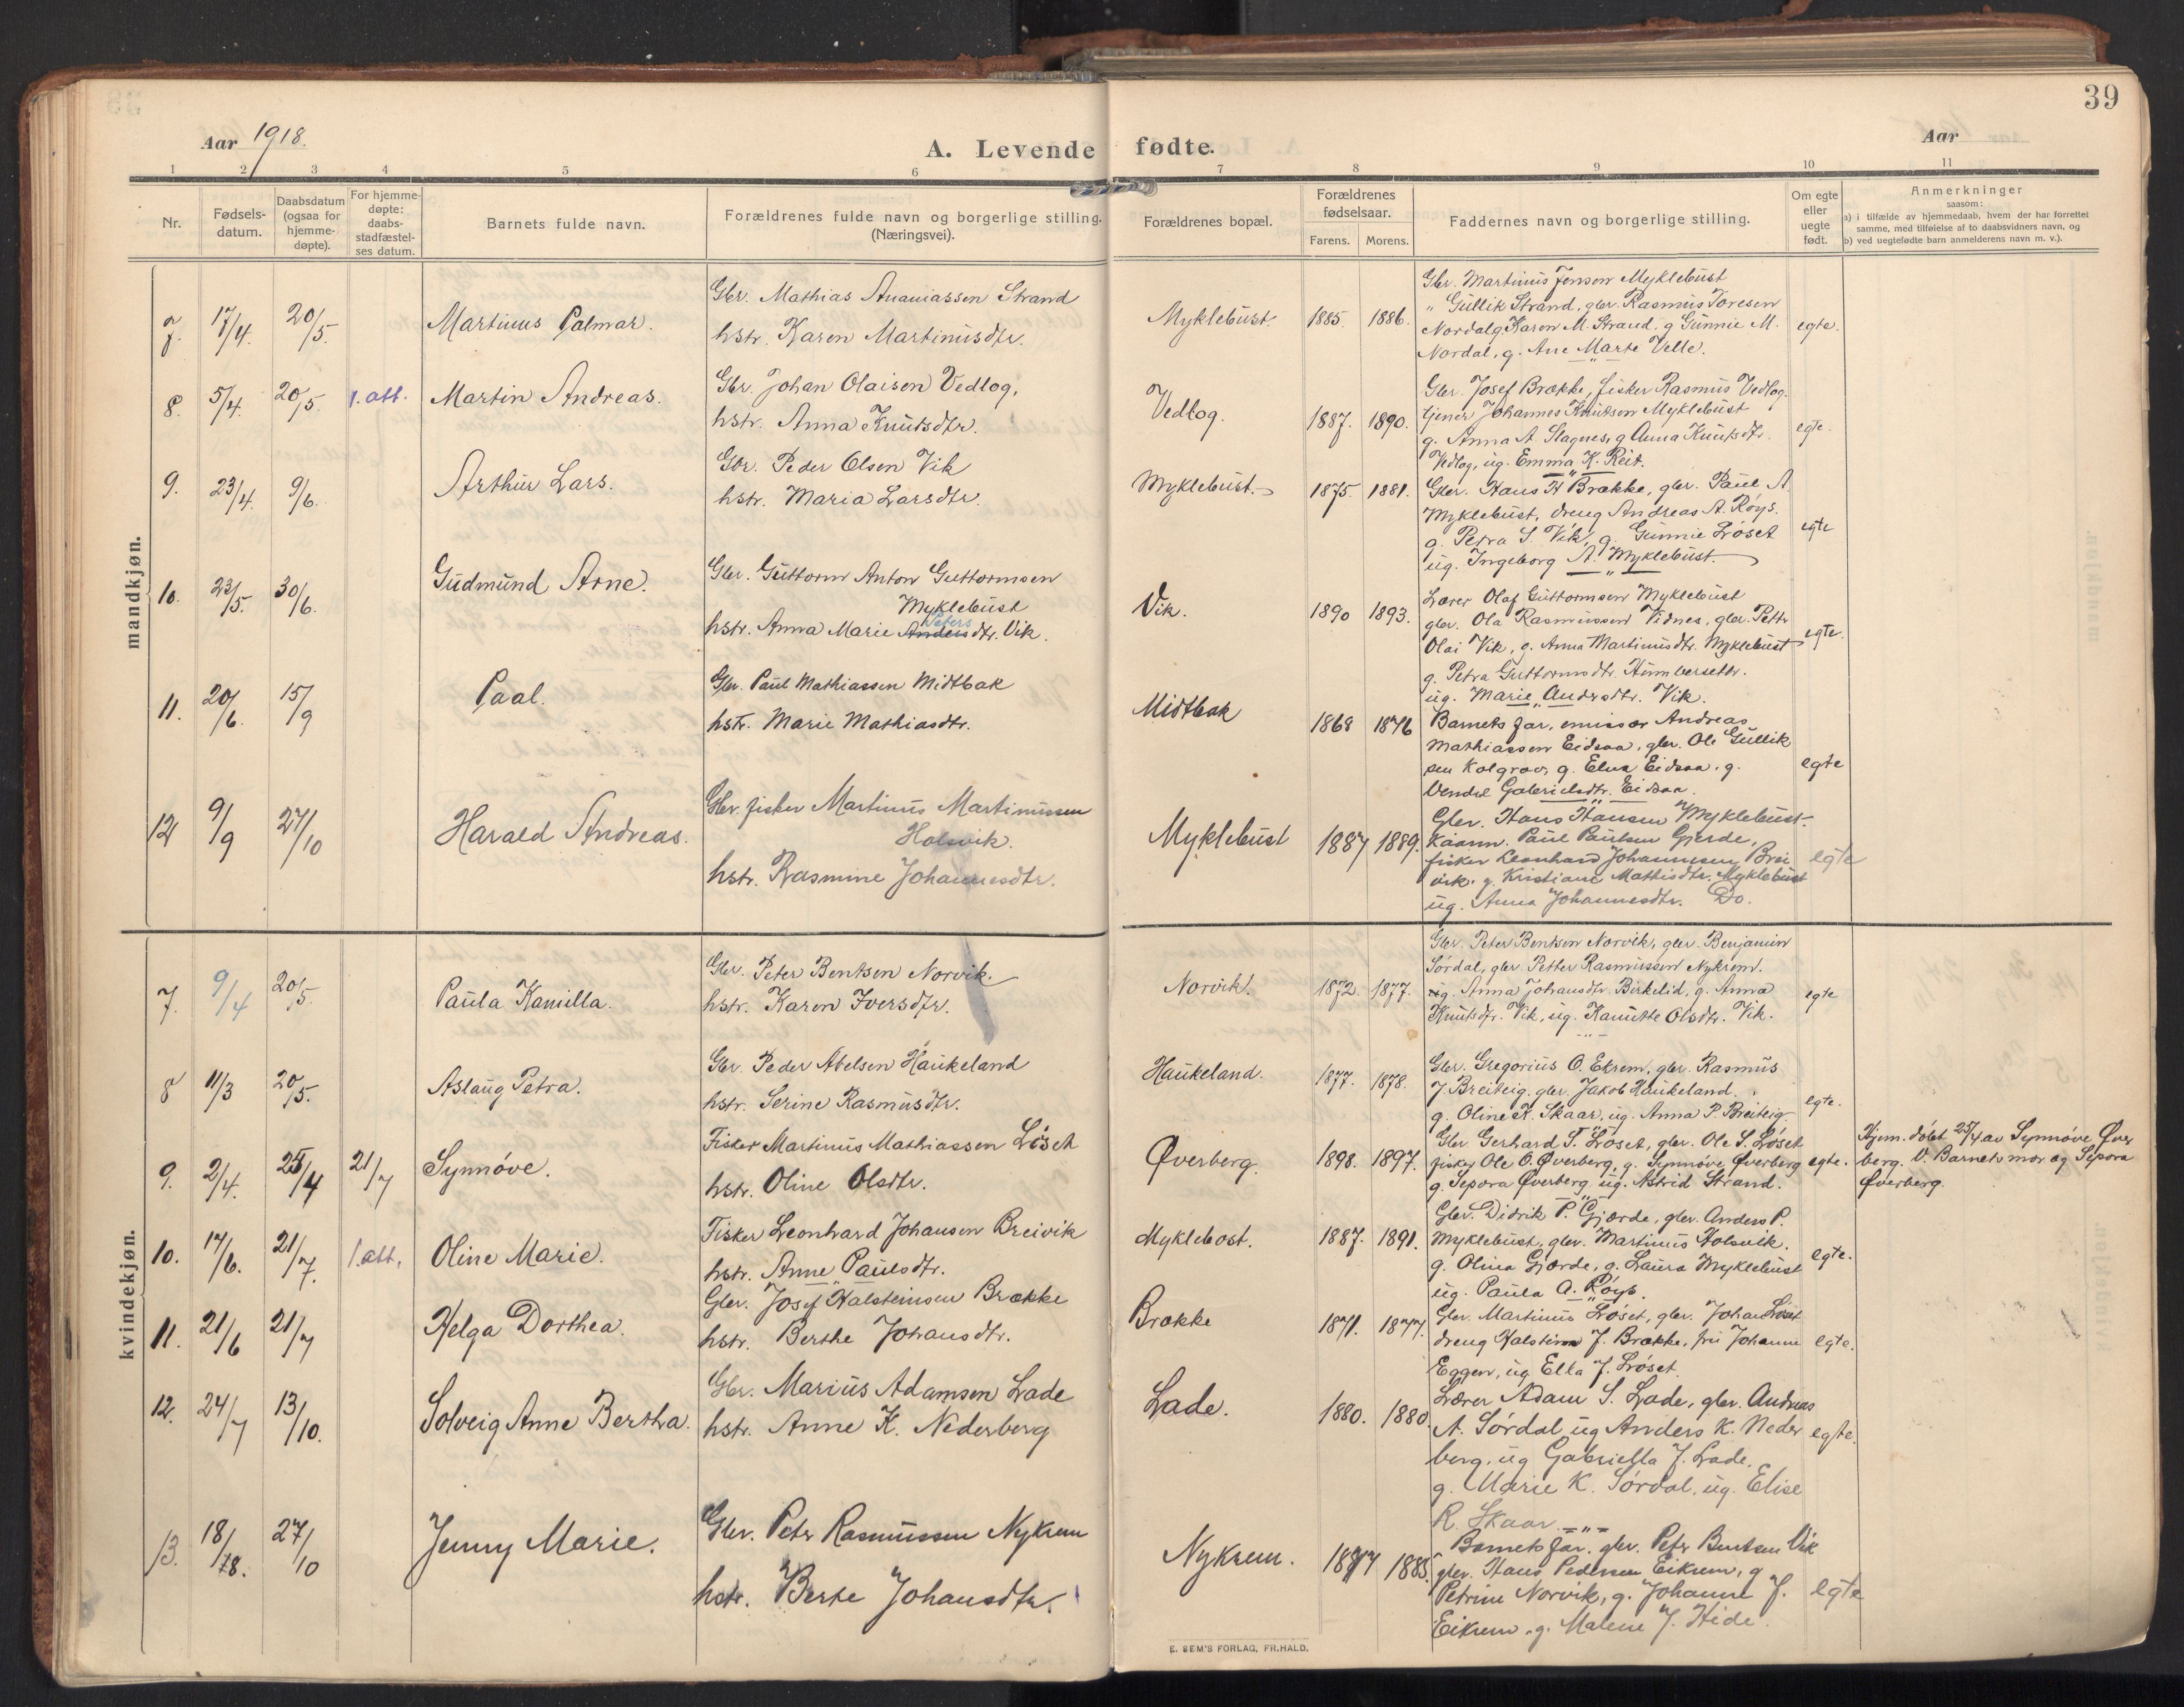 39
Aar 1918.
A. Levende fødte.
Aar
1 2 3 4 5 6 7 8 9 10 11
Nr.
Fødsels-
datum.
Daabsdatum
(ogsaa for
hjemme-
døpte).
For hjemme-
døpte:
daabs-
stadfæstel-
ses datum.
Barnets fulde navn.
Forældrenes fulde navn og borgerlige stilling.
(Næringsvei).
Forældrenes bopæl.
Forældrenes
fødselsaar.
Farens. Morens.
Faddernes navn og borgerlige stilling.
Om egte
eller
uegte
født.
Anmerkninger
saasom:
a) i tilfælde av hjemmedaab, hvem der har forrettet
samme, med tilføielse af to daabsvidners navn, og
b) ved uegtefødte barn anmelderens navn m. v.).
mandkjøn.
7. 17/4. 20/5. Martinus Palmar.
Gbr. Mathias Ananiassen Strand
hstr. Karen Martinusdtr.
Myklebust. 1885. 1886.
Gbr. Martinus Jenson Myklebust
" Gullik Strand, gbr. Rasmus Toresen
Nordal g. Karen M. Strand. g. Gunnie M.
Nordal, g. Ane Marte Velle.
egte.
8. 5/4. 20/5. 1. att. Martin Andreas.
Gbr. Johan Olaisen Vedlog,
hstr. Anna Knutsdtr.
Vedlog. 1887. 1890.
Gbr. Josef Brække, fisker Rasmus Vedlog.
tjener Johannes Knutson Myklebust
g. Anna A. Slagnes, g. Anna Knutsdtr.
Vedlog, ug. Emma K. Reit.
egte.
9. 23/4. 9/6. Arthur Lars.
Gbr. Peder Olsen Vik
hstr. Maria Larsdtr.
Myklebust. 1875. 1881.
Gbr. Hans H Brække, gbr. Paul A.
Myklebust, dreng Andreas A. Røys.
g. Petra S. Vik, g. Gunnie Løset
ug. Ingeborg A. Myklebust.
egte
10. 23/5. 30/6. Gudmund Arne.
Gbr. Guttorm Anton Guttormsen
Myklebust
Peters
hstr. Anna Marie Andersdtr. Vik.
Vik. 1890 1893.
Lærer Olaf Guttormsen Myklebust
gbr. Ola Rasmussen Vidnes, gbr. Petter
Olai Vik, g. Anna Martinusdtr. Myklebust
g. Petra Guttormsdtr. Humbersettr.
ug. Marie Andersdtr. Vik.
egte.
11. 20/6. 15/9 Paal.
Gbr. Paul Mathiassen Midtbak
hstr. Marie Mathiasdtr.
Midtbak 1868 1876
Barnets far, emissær Andreas
Mathiassen Eidsaa, gbr. Ole Gullik
sen Kolgrov, g. Elna Eidsaa. g.
Vendel Gabrielsdtr. Eidsaa.
egte
12 9/9 27/10 Harald Andreas.
Gbr. fisker Martinus Martinussen
Holsvik.
hstr. Rasmine Johannesdtr.
Myklebust 1887 1889.
Gbr. Hans Hansen Myklebust.
Kaarm. Paul Paulsen Gjerde,
fisker Leonhard Johannesen Brei
vik. g. Kristiane Mathisdtr. Myklebust
ug. Anna Johannesdtr. Do.
egte
kvindekjøn.
7. 9/4 20/5. Paula Kamilla.
Gbr. Peter Bentsen Norvik.
hstr. Karen Iversdtr.
Norvik. 1872. 1877.
Gbr. Peter Bentsen Norvik, gbr. Benjamin
Sørdal, gbr. Petter Rasmussen Nykrem.
ug. Anna Johansdtr. Birkelid, g. Anna
Knutsdtr. Vik, ug. Kanutte Olsdtr. Vik.
egte
8 11/3 20/5. Aslaug Petra.
Gbr. Peder Abelsen Haukeland
hstr. Serine Rasmusdtr.
Haukeland. 1877. 1878.
Gbr. Gregorius O. Ekrem, gbr. Rasmus
J. Breiteig. gbr. Jakob Haukeland.
g. Oline K. Skaar, ug. Anna P. Breiteig
egte.
9. 2/4. 25/4 21/7 Synnøve.
Fisker Martinus Mathiassen Løset
hstr. Oline Olsdtr.
Øverberg. 1898. 1897.
Gbr Gerhard T. Løset, gbr. Ole S. Løset
fisker Ole O. Øverberg, g. Synnøve Øverberg
g. Sepora Øverberg ug. Astrid Strand.
egte.
Hjem. døbt 25/4 av Synnøve Øver
berg. V. Barnets mor og Sepora
Øverberg.
10. 17/6. 21/7. 1. att. Oline Marie.
Fisker Leonhard Johansen Breivik
hstr. Anne Paulsdtr.
Myklebost. 1887. 1891.
Gbr. Didrik P. Gjærde, gbr. Anders P.
Myklebust, gbr. Martinus Holsvik.
g. Olina Gjærde, g. Laura Myklebust
ug. Paula A. Røys.
egte.
11. 21/6 21/7 Helga Dorthea.
Gbr. Josef Halsteinsen Brække
hstr. Berthe Johansdtr.
Brække 1871. 1877.
Gbr. Martinus Løset, gbr. Johan Løset
dreng Halstein J. Brække, fru Johanne
Eggen, ug Ella J. Løset.
egte.
12. 24/7 13/10. Solveig Anne Bertha.
Gbr. Marius Adamsen Lade
hstr. Anne K. Nederberg
Lade. 1880. 1880.
Lærer Adam S. Lade, gbr. Andreas
A. Sørdal ug Anders K. Neder
berg, ug Gabriella J. Lade.
g. Marie K. Sørdal. ug. Elise
R. Skaar
egte.
13. 18/18. 27/10 Jenny Marie.
Gbr. Petr Rasmussen Nykrem
hstr. Berte Johansdtr.
Nykrem. 1885.
Barnets far, gbr. Petr Bentsen Vik
gbr. Hans Pedersen Eikrem, g
Petrine Norvik, g. Johanne J.
Eikrem, g. Malene J. Hide.
egte
E. SEM'S FORLAG, FR.HALD.